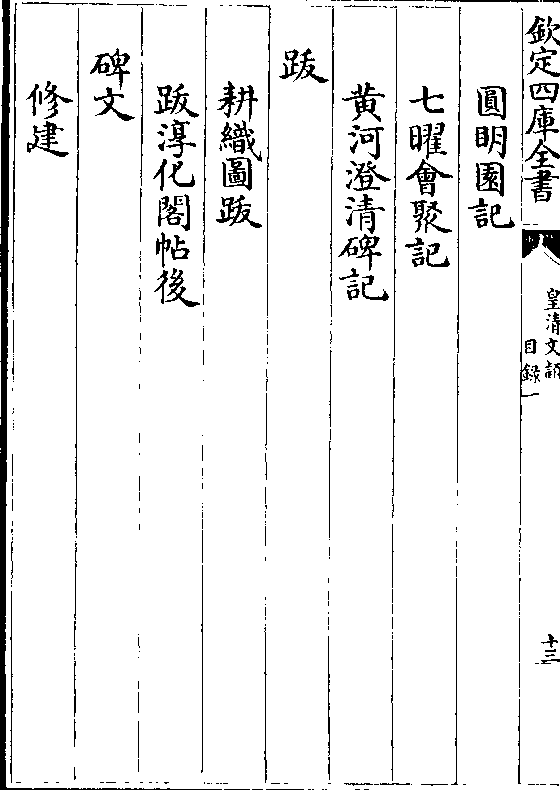 欽定四庫全書
皇清文
目錄一
十三
圓明園記
七曜會聚記
黃河澄清碑記
跋
耕織圖跋
跋淳化閣帖後
碑文
修建